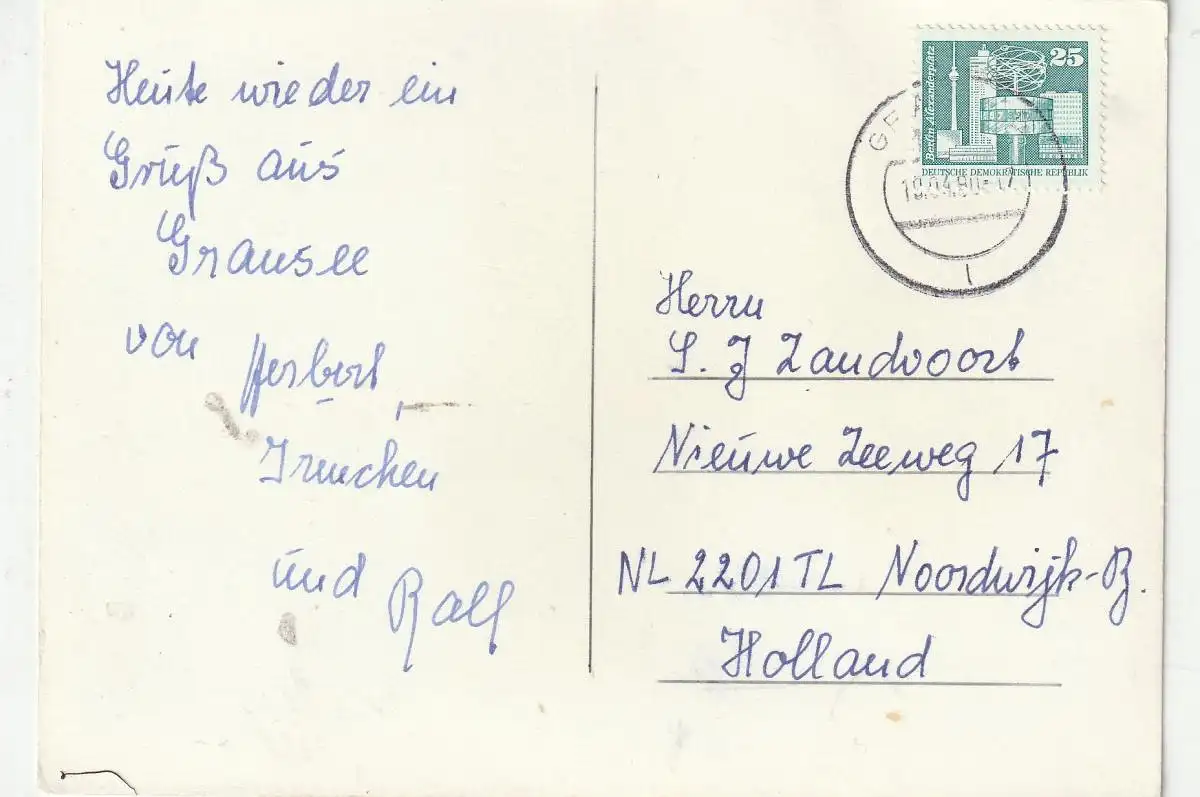 Heute wieder ein
Gruß aus
Gransee
von Herbert,
Irmchen
und Ralf
25
Berlin Alexanderplatz
DEUTSCHE DEMOKRATISCHE REPUBLIK
19.04.80
1
Herrn
S. J Zandvoort
Nieuwe Zeeweg 17
NL 2201 TL Noordwijk-B.
Holland